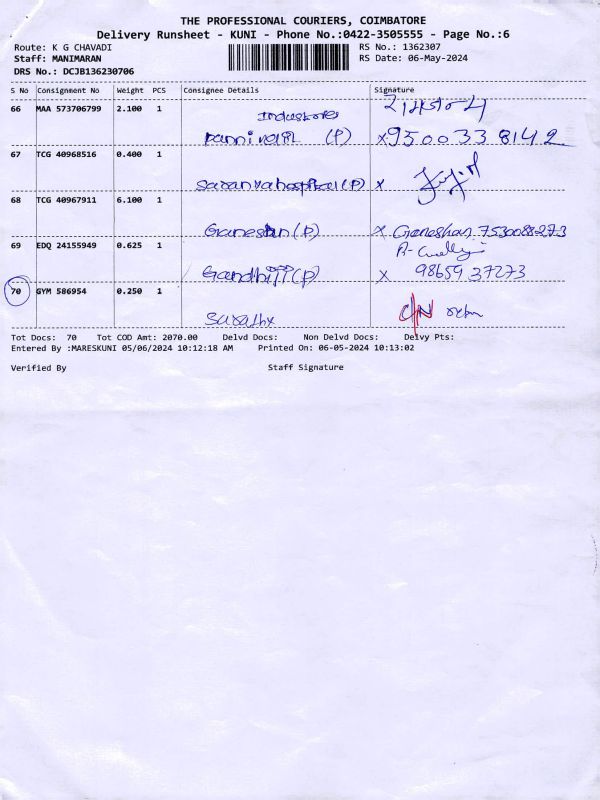 THE PROFESSIONAL COURIERS, COIMBATORE
Delivery Runsheet - KUNI - Phone No.:0422-3505555 - Page No.:6
Route: K G CHAVADI RS No.: 1362307
Staff: MANIMARAN RS Date: 06-May-2024
DRS No.: DCJB136230706
S No Consignment No Weight PCS Consignee Details Signature
66 MAA 573706799 2.100 1
Industries
(P) x 9500338142
67 TCG 40968516 0.400 1
Saranya hospital (P) x
68 TCG 40967911 6.100 1
Ganeshan (P) x Ganeshan 7530088273
69 EDQ 24155949 0.625 1
Gandhiji (P) x 98659 37273
70 GYM 586954 0.250 1
C/N
Tot Docs: 70 Tot COD Amt: 2070.00 Delvd Docs: Non Delvd Docs: Delvy Pts:
Entered By :MARESKUNI 05/06/2024 10:12:18 AM Printed On: 06-05-2024 10:13:02
Verified By Staff Signature